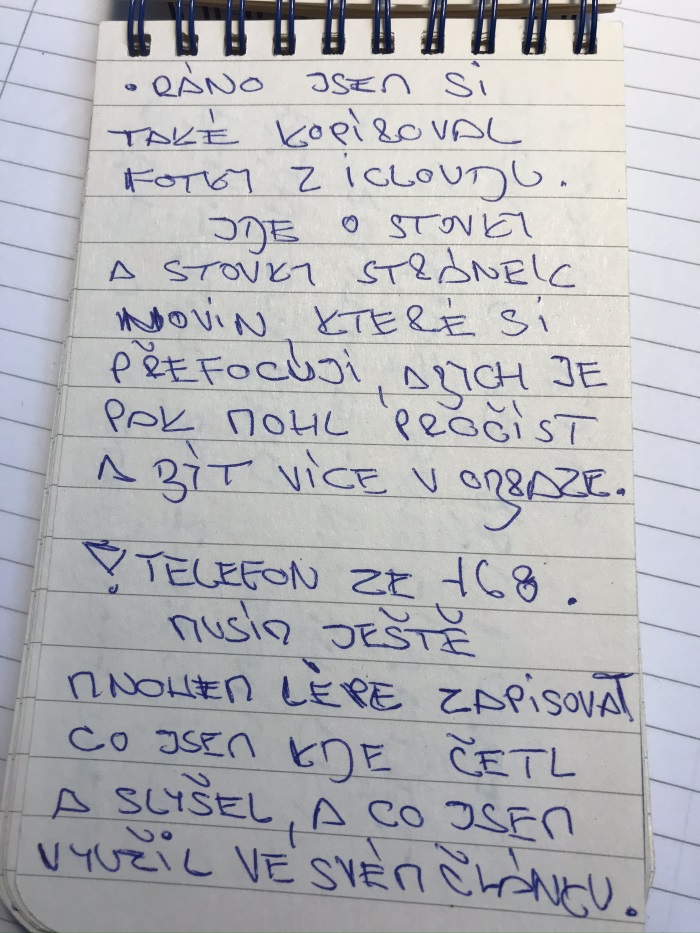 • RÁNO JSEM SI
TAKÉ KOPÍROVAL
FOTKY Z ICLOUDU.
JDE O STOVKY
A STOVKY STRÁNEK
NOVIN KTERÉ SI
PŘEFOCUJI, ABYCH JE
PAK MOHL PROČÍST
A BÝT VÍCE V OBRAZE.
! TELEFON ZE 168.
MUSÍM JEŠTĚ
MNOHEM LÉPE ZAPISOVAT
CO JSEM KDE ČETL
A SLYŠEL, A CO JSEM
VYUŽIL VE SVÉM ČLÁNKU.